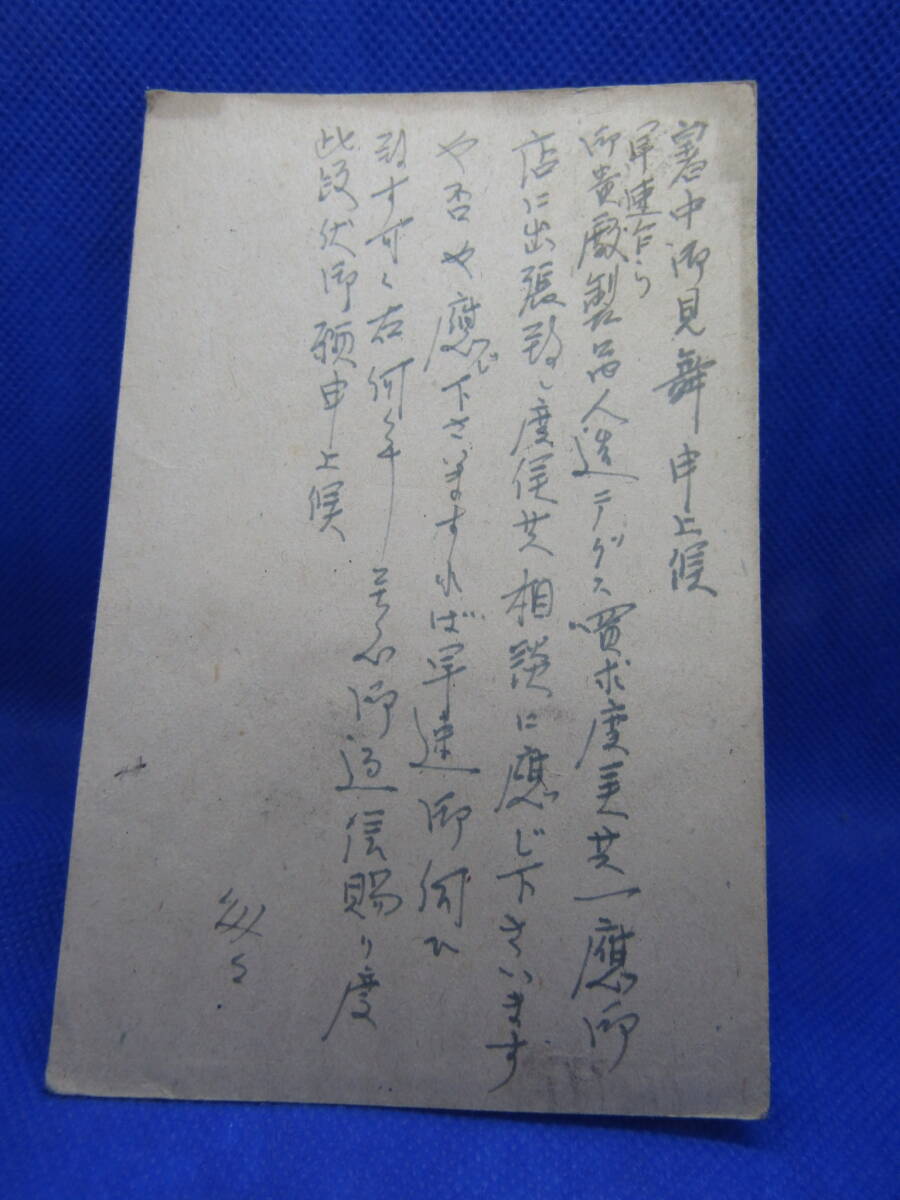 暑中御見舞申上候
早速乍ら
御貴廠製品人造テグス買求度候共一應御
店に出張致し度候共相談に應じ下さいます
や否や應じ下さいますれば早速御伺ひ
致す可く右何卒 御返信賜り度
此段伏御願申上候
匆々